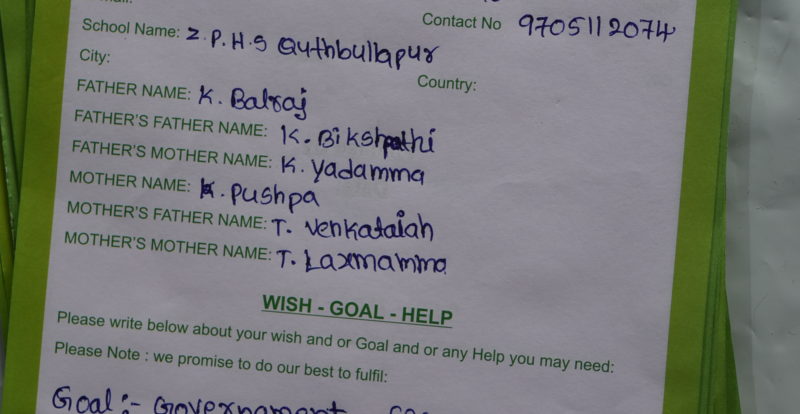 Contact No 9705112074
School Name: Z.P.H.S Quthbullapur
City:
Country:
FATHER NAME: K. Balraj
FATHER'S FATHER NAME: K. Bikshpathi
FATHER'S MOTHER NAME: K. Yadamma
MOTHER NAME: K. Pushpa
MOTHER'S FATHER NAME: T. Venkataiah
MOTHER'S MOTHER NAME: T. Laxmamma
WISH - GOAL - HELP
Please write below about your wish and or Goal and or any Help you may need:
Please Note : we promise to do our best to fulfil:
Goal :- Governament